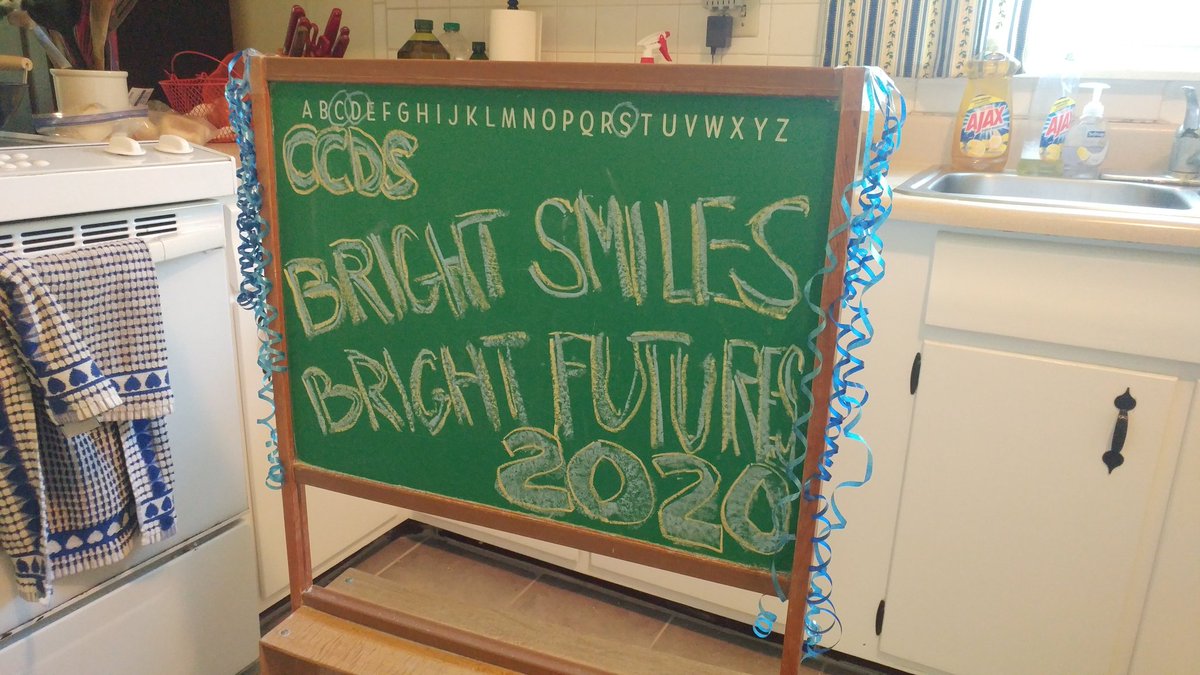 ABCDEFGHIJKLMNOPQRSTUVWXYZ
CCDS
BRIGHT SMILES
BRIGHT FUTURES
2020
AJAX
AJAX